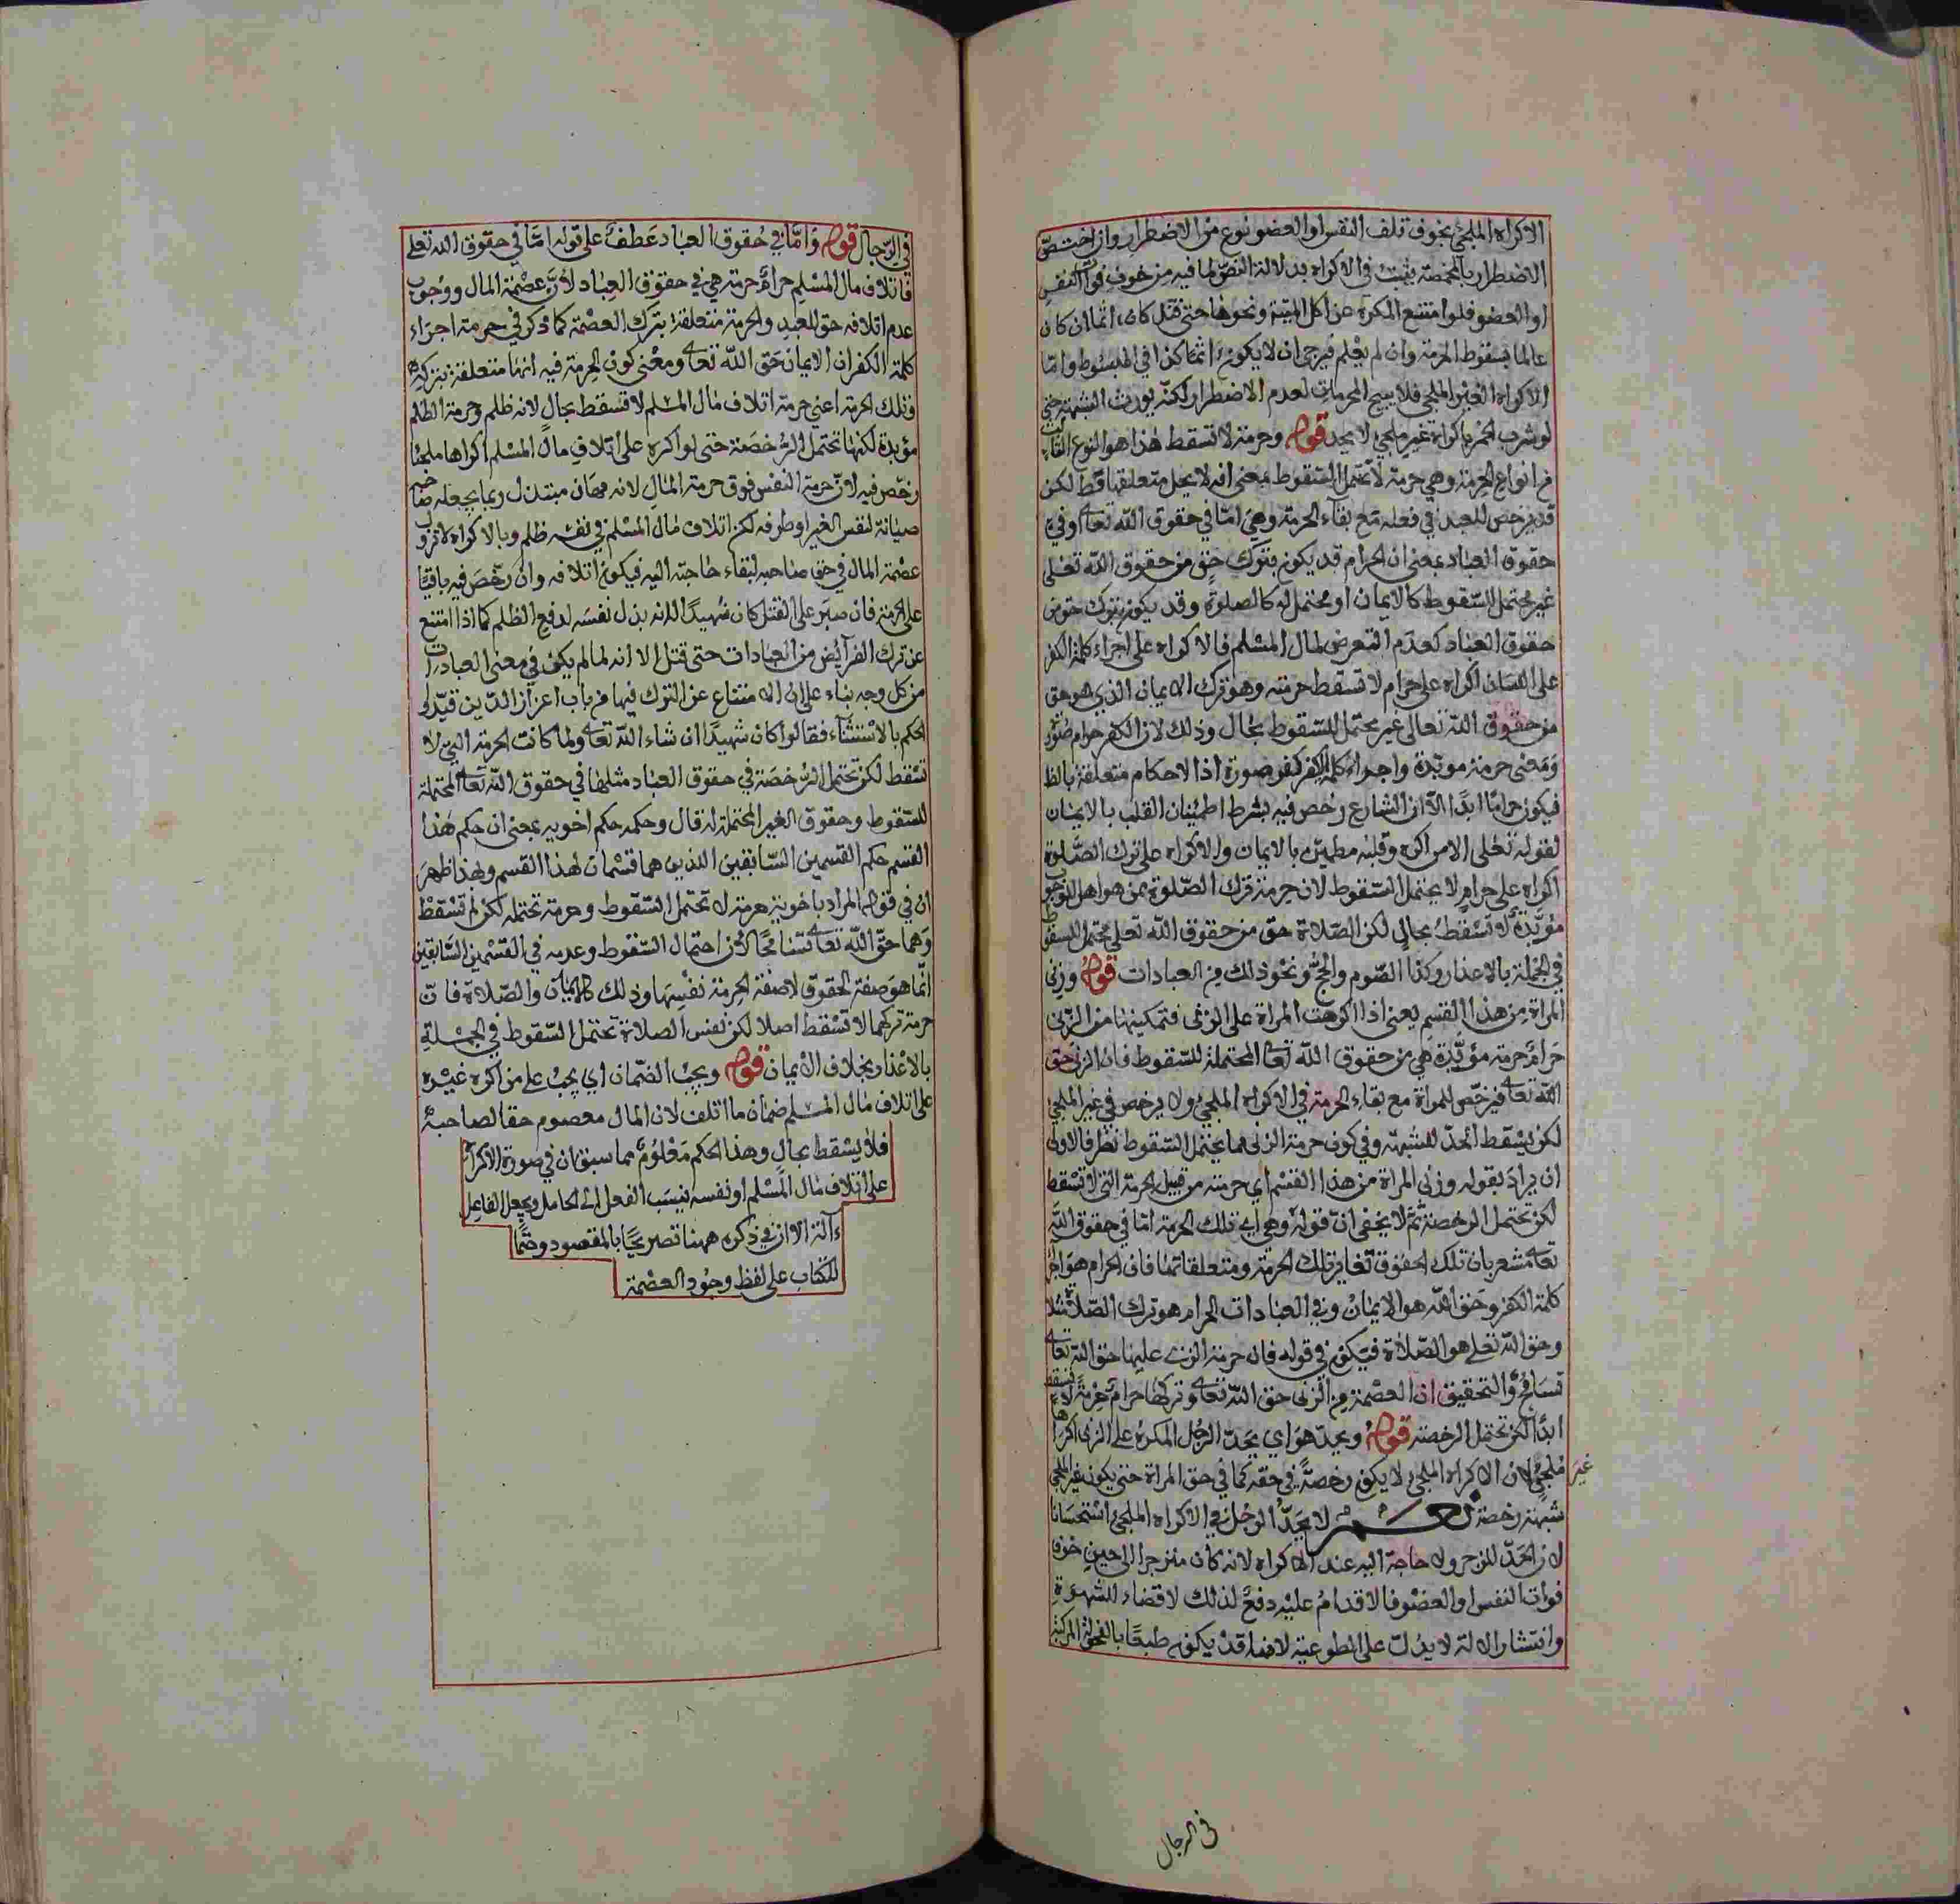 الاكراه الملجئ بخوف تلف النفس او العضو نوع من الاضطرار وان اختصّ
الاضطرار بالمخمصة يثبت في الاكراه بدلالة النصّ لما فيه من خوف فوات النفس
او العضو فلو امتنع المكره عن اكل الميتة ونحوها حتى قتل كان اثما ان كان
عالما بسقوط الحرمة وان لم يعلم فيرجى ان لا يكون اثما كذا في المبسوط وامّا
الاكراه الغير الملجي فلا يبيح المحرمات لعدم الاضطرار لكنّه يورث الشبهة حتى
لو شرب الخمر باكراه غير ملجئ لا يحد قوله وحرمة لا تسقط هذا هو النوع الثالث
من انواع الحرمة وهي حرمة لا تحتمل السقوط بمعنى انه لا يحل متعلقها قط لكن
قد يرخص للعبد في فعله مع بقاء الحرمة وهي امّا في حقوق الله تعالى او في
حقوق العباد بمعنى ان الحرام قد يكون بترك حق من حقوق الله تعلى
غير محتمل للسّقوط كالايمان او محتمل له كالصلوة وقد يكون بترك حق من
حقوق العباد كعدم التعرض لمال المسلم فالاكراه على اجراء كلمة الكفر
على اللسان اكراه على حرام لا تسقط حرمته وهو ترك الايمان الذي هو حق
من حقوق الله تعالى غير محتمل للسّقوط بحال وذلك لان الكفر حرام صورة
ومعنى حرمة مؤبّدة واجراء كلمة الكفر كفر صورة اذ الاحكام متعلقة بالظ
فيكون حراما ابدا الّا ان الشارع رخص فيه بشرط اطمئنان القلب بالايمان
لقوله تعلى الا من اكره وقلبه مطمئن بالايمان والاكراه على ترك الصّلوة
اكراه على حرام لا يحتمل السّقوط لان حرمة ترك الصّلوة ممن هو اهل للوجوب
مؤبّدة لا تسقط بحال لكن الصّلاة حق من حقوق الله تعلى محتمل للسقوط
في الجملة بالاعذار وكذا الصّوم والحجّ ونحو ذلك من العبادات قوله وزنى
المراة من هذا القسم يعني اذا اكرهت المراة على الزنى فتمكينها من الزنى
حرام حرمة مؤبّدة هي من حقوق الله تعالى المحتملة للسّقوط فان الزنى حق
الله تعالى فيرخّص للمراة مع بقاء الحرمة في الاكراه الملجئ ولا يرخص في غير الملجئ
لكن يسقط الحدّ للشبهة وفي كون حرمة الزنى مما يحتمل السّقوط نظر فالاولى
ان يراد بقوله وزنى المراة من هذا القسم اي حرمته من قبيل الحرمة التي لا تسقط
لكن تحتمل الرخصة ثمّ لا يخفى انّ قوله وهي اي تلك الحرمة امّا في حقوق الله
تعالى مشعر بان تلك الحقوق تغاير تلك الحرمة ومتعلقاتها فان الحرام هو اجراء
كلمة الكفر وحق الله هو الايمان وفي العبادات الحرام هو ترك الصّلاة مثلا
وحق الله تعلى هو الصّلاة فيكون في قوله فان حرمة الزنى عليها حق الله تعالى
تسامح والتحقيق ان العصمة من الزنى حق الله تعالى وتركها حرام حرمة لا تسقط
ابدا لكن تحتمل الرخصة قوله ويحدّ هو اي يحدّ الرجل المكره على الزنى اكراها
غير ملجئ لان الاكراه الملجئ لا يكون رخصة في حقه كما في حق المراة حتى يكون غير الملجئ
شبهة رخصة نعم لا يحدّ الرجل في الاكراه الملجئ استحسانا
لان الحدّ للزجر ولا حاجة اليه عند الاكراه لانه كان منزجرا الى حين خوف
فوات النفس او العضو فالاقدام عليه دفع لذلك لا قضاء للشهوة
وانتشار الالة لا يدلّ على الطوعية لانه قد يكون طبعا بالفحولة المركبة
في الرجال
في الرّجال قوله وامّا في حقوق العباد عطف على قوله امّا في حقوق الله تعلى
فاتلاف مال المسلم حرام حرمة هي في حقوق العباد لانّ عصمة المال ووجوب
عدم اتلافه حق للعبد والحرمة متعلقة بترك العصمة كما ذكر في حرمة اجراء
كلمة الكفر ان الايمان حق الله تعالى ومعنى كون الحرمة فيه انها متعلقة بتركه
وتلك الحرمة اعني حرمة اتلاف مال المسلم لا تسقط بحال لانه ظلم وحرمة الظلم
مؤبدة لكنها تحتمل الرّخصة حتى لو اكره على اتلاف مال المسلم اكراها ملجئا
رخص فيه لان حرمة النفس فوق حرمة المال لانه مهان مبتذل ربما يجعله صاحبه
صيانة لنفس الغير او طرفه لكن اتلاف مال المسلم في نفسه ظلم وبالاكراه لا تزول
عصمة المال في حق صاحبه لبقاء حاجته اليه فيكون اتلافه وان رخّص فيه باقيا
على الحرمة فان صبر على القتل كان شهيدا لانه بذل نفسه لدفع الظلم كما اذا امتنع
عن ترك الفرائض من العبادات حتى قتل الا انه لما لم يكن في معنى العبادات
من كل وجه بناء على ان الامتناع عن الترك فيها من باب اعزاز الدّين قيّدوا
الحكم بالاستثناء فقالوا كان شهيدا ان شاء الله تعالى ولما كانت الحرمة التي لا
تسقط لكن تحتمل الرخصة في حقوق العباد مثلها في حقوق الله تعالى المحتملة
للسّقوط وحقوق الغير المحتملة له قال وحكمه حكم اخويه بمعنى ان حكم هذا
القسم حكم القسمين السّابقين اللذين هما قسمان لهذا القسم وبهذا ظهر
ان في قوله المراد باخويه حرمة لا تحتمل السّقوط وحرمة تحتمله لكن لم تسقط
وهما حقّ الله تعالى تسامحا لان احتمال السّقوط وعدمه في القسمين السّابقين
انّما هو صفة الحقوق لا صفة الحرمة نفسها وذلك كالايمان والصّلاة فان
حرمة تركهما لا تسقط اصلا لكن نفس الصلاة تحتمل السّقوط في الجملة
بالاعذار بخلاف الايمان قوله ويجب الضّمان اي يجب على من اكره غيره
على اتلاف مال المسلم ضمان ما اتلف لان المال معصوم حقا لصاحبه
فلا يسقط بحال وهذا الحكم معلوم مما سبق ان في صورة الاكراه
على اتلاف مال المسلم او نفسه ينسب الفعل الى الحامل ويجعل الفاعل
ءالة الا ان في ذكره ههنا تصريحا بالمقصود وختما
للكتاب على لفظ وجود العصمة